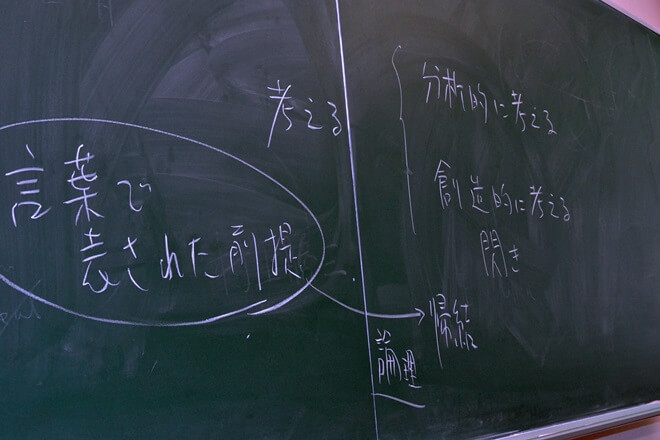 考える
言葉で
表された前提
分析的に考える
創造的に考える
閃き
帰結
論理